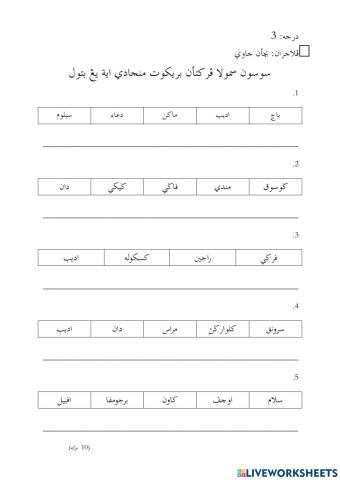 درجه: 3
ڤلاجران: بڠأن جاوي
سوسون سمولا ڤركتأن بريكوت منجادي اية يڠ بتول
.1
باچ اديب ماكن دعاء سبلوم
.2
ݢوسوق مندي ݢاݢي ݢيݢي دان
.3
ڤرݢي راجين كسكوله اديب
.4
سروڠݢ كلوارݢن مراس دان اديب
.5
سلام اوچف كاون برجومڤا اڤبيل
(10 مركه)
LIVEWORKSHEETS